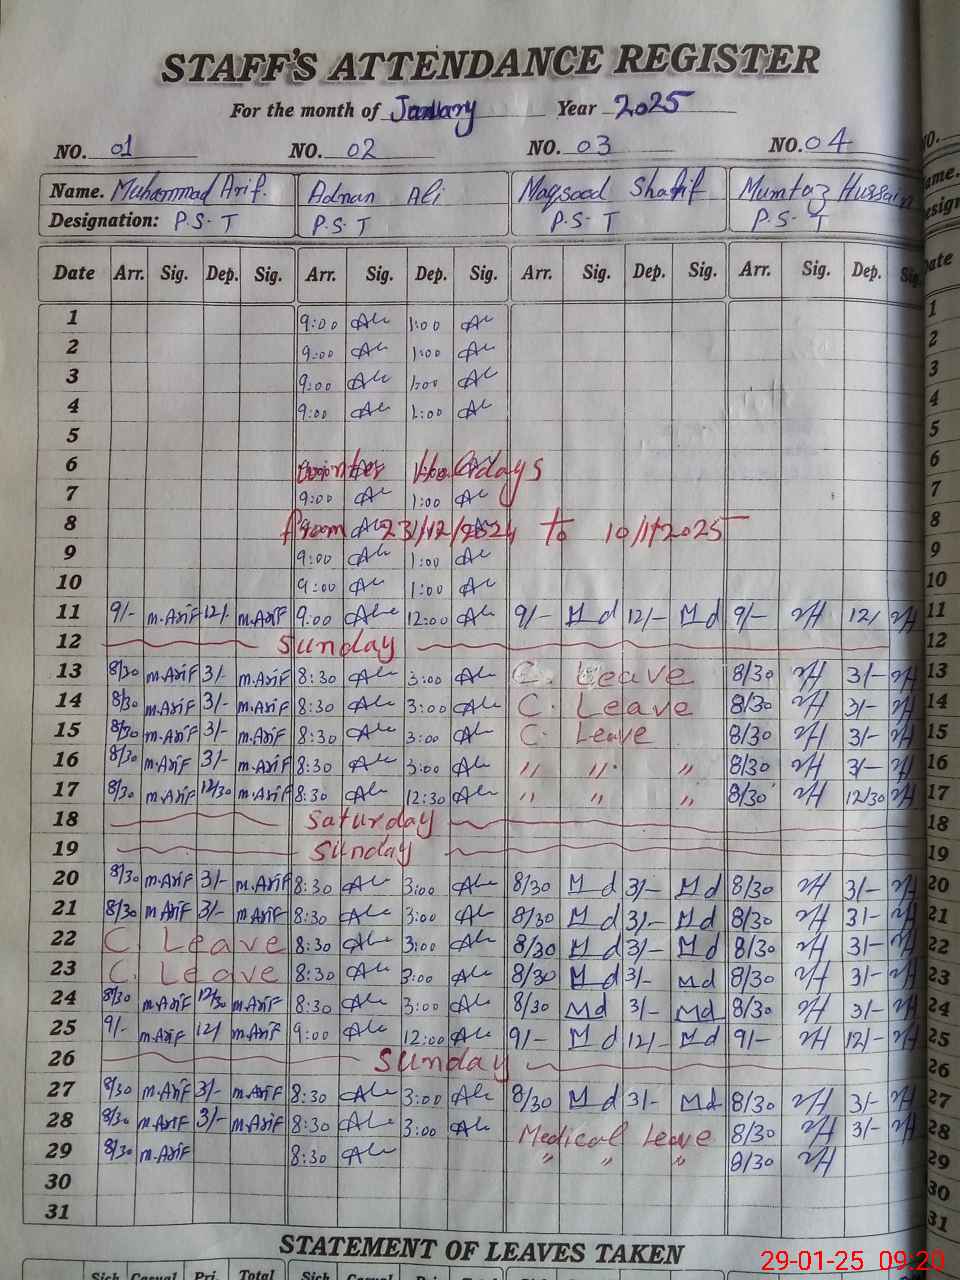 STAFF'S ATTENDANCE REGISTER
For the month of January Year 2025
NO. 01 NO. 02 NO. 03 NO. 04
Name. Muhammad Arif. Adnan Ali Maqsood Sharif Mumtaz Hussain
Designation: P.S.T P.S.T P.S.T P.S.T
Date Arr. Sig. Dep. Sig. Arr. Sig. Dep. Sig. Arr. Sig. Dep. Sig. Arr. Sig. Dep. Sig.
1 9:00 Ali 1:00 Ali 1
2 9:00 Ali 1:00 Ali 2
3 9:00 Ali 1:00 Ali 3
4 9:00 Ali 1:00 Ali 4
5 5
6 Winter Holidays 6
7 9:00 Ali 1:00 Ali 7
8 from 23/12/2024 to 10/1/2025 8
9 9:00 Ali 1:00 Ali 9
10 9:00 Ali 1:00 Ali 10
11 9/- M.Arif 12/- M.Arif 9:00 Ali 12:00 Ali 9/- M d 12/- M d 9/- MH 12/ MH 11
12 Sunday 12
13 8/30 M.Arif 3/- M.Arif 8:30 Ali 3:00 Ali C. Leave 8/30 MH 3/- MH 13
14 8/30 M.Arif 3/- M.Arif 8:30 Ali 3:00 Ali C. Leave 8/30 MH 3/- MH 14
15 8/30 M.Arif 3/- M.Arif 8:30 Ali 3:00 Ali C. Leave 8/30 MH 3/- MH 15
16 8/30 M.Arif 3/- M.Arif 8:30 Ali 3:00 Ali " " " 8/30 MH 3/- MH 16
17 8/30 M.Arif 12/30 M.Arif 8:30 Ali 12:30 Ali " " " 8/30 MH 12/30 MH 17
18 Saturday 18
19 Sunday 19
20 8/30 M.Arif 3/- M.Arif 8:30 Ali 3:00 Ali 8/30 M d 3/- M d 8/30 MH 3/- MH 20
21 8/30 M.Arif 3/- M.Arif 8:30 Ali 3:00 Ali 8/30 M d 3/- M d 8/30 MH 3/- MH 21
22 C. Leave 8:30 Ali 3:00 Ali 8/30 M d 3/- M d 8/30 MH 3/- MH 22
23 C. Leave 8:30 Ali 3:00 Ali 8/30 M d 3/- Md 8/30 MH 3/- MH 23
24 8/30 M.Arif 12/30 M.Arif 8:30 Ali 3:00 Ali 8/30 Md 3/- Md 8/30 MH 3/- MH 24
25 9/- M.Arif 12/ M.Arif 9:00 Ali 12:00 Ali 9/- M d 12/- M d 9/- MH 12/- MH 25
26 Sunday 26
27 8/30 M.Arif 3/- M.Arif 8:30 Ali 3:00 Ali 8/30 M d 3/- Md 8/30 MH 3/- MH 27
28 8/30 M.Arif 3/- M.Arif 8:30 Ali 3:00 Ali Medical Leave 8/30 MH 3/- MH 28
29 8/30 M.Arif 8:30 Ali " " " 8/30 MH 29
30 30
31 31
STATEMENT OF LEAVES TAKEN
29-01-25 09:20
Sick Casual Pri. Total Sick Casual